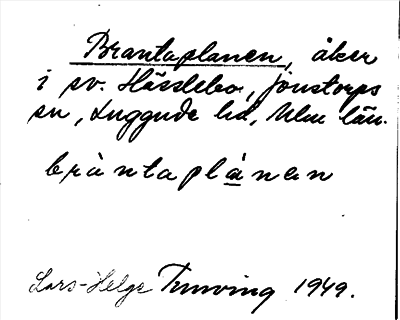 Brantaplanen, åker
i sv. Hässlebo, Jonstorps
sn, Luggude hd, Mlm län.
bràntaplànan
Lars-Helge Tunving 1949.